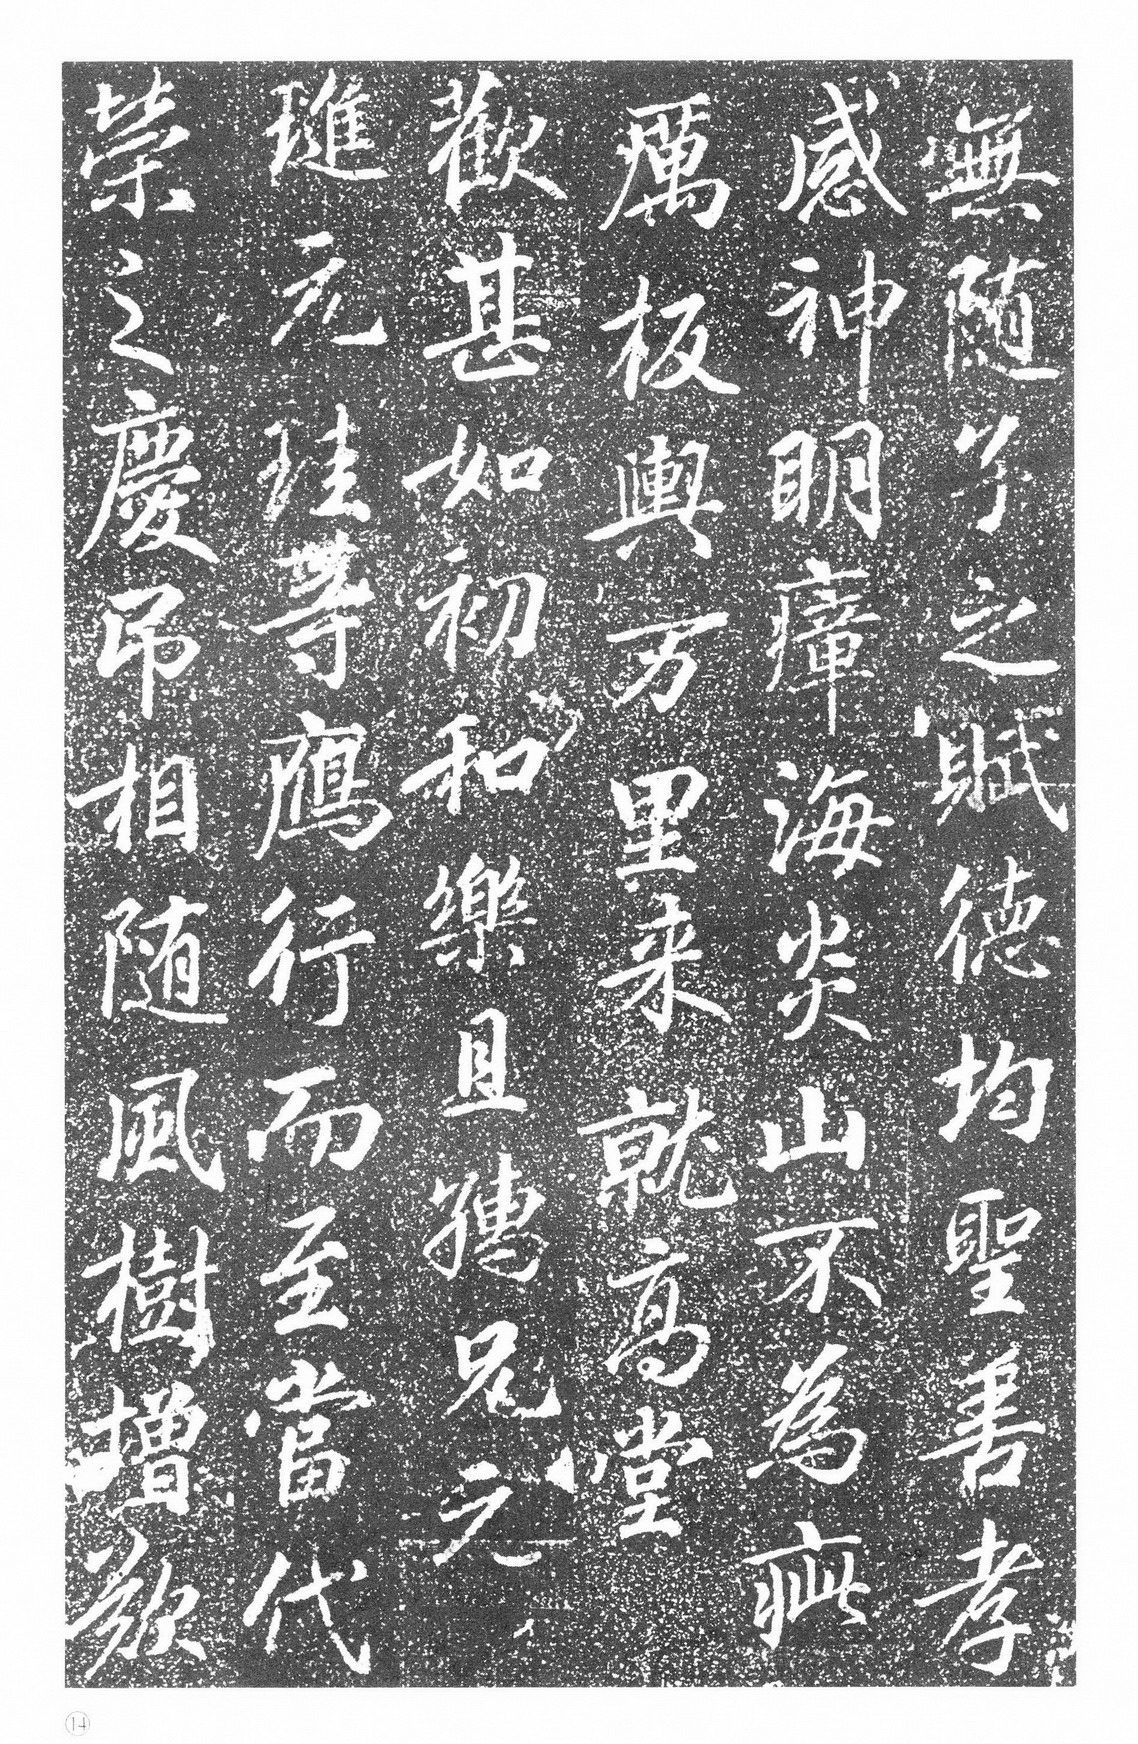 無随子之賦德均聖善孝
感神明瘴海炎山不為疵
厲板輿万里来就高堂
歡甚如初和樂且孺兄元
璡元珪等鴈行而至當代
榮之慶吊相随風樹增歎
14